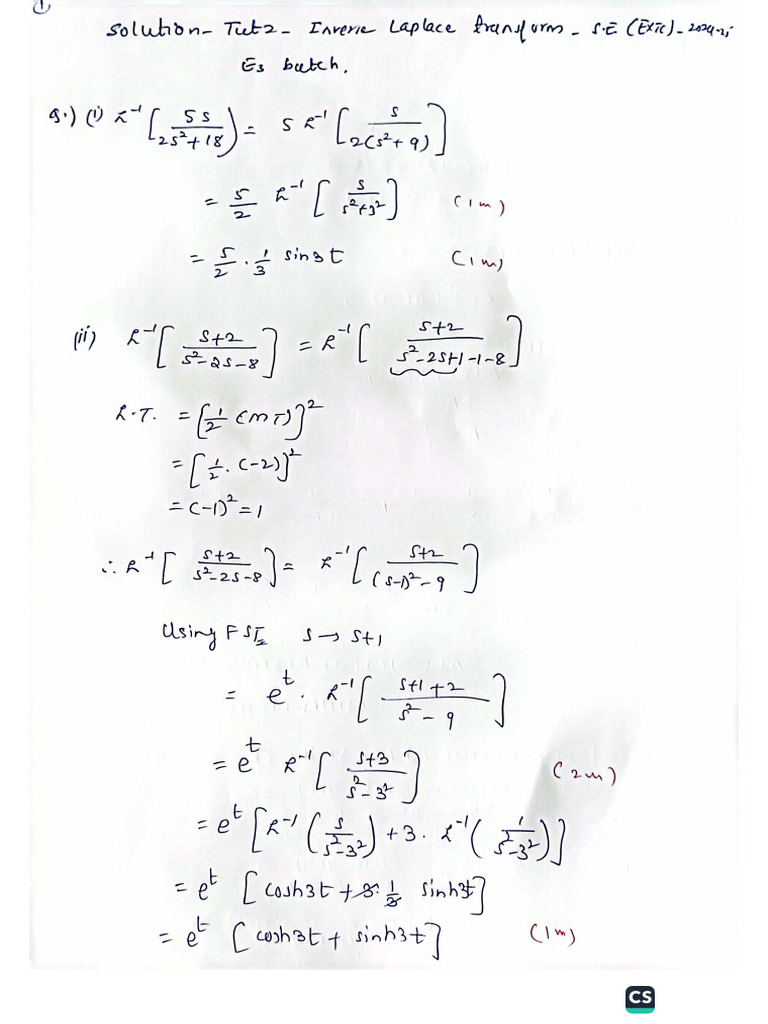 ①
Solution - Tut 2 - Inverse Laplace transform - S.E (EXTC) - 2024-2
E3 batch.
Q.) (i) L⁻¹[5s/(2s²+18)] = 5 L⁻¹[s/(2(s²+9))]
= 5/2 L⁻¹[s/(s²+3²)] (1m)
= 5/2 · 1/3 sin3t (1m)
(ii) L⁻¹[(s+2)/(s²-2s-8)] = L⁻¹[(s+2)/(s²-2s+1-1-8)]
L.T. = [1/2 (MT)]²
= [1/2 · (-2)]²
= (-1)² = 1
∴ L⁻¹[(s+2)/(s²-2s-8)] = L⁻¹[(s+2)/((s-1)²-9)]
Using FST, s → s+1
= eᵗ · L⁻¹[(s+1+2)/(s²-9)]
= eᵗ L⁻¹[(s+3)/(s²-3²)] (2m)
= eᵗ [L⁻¹(s/(s²-3²)) + 3 · L⁻¹(1/(s²-3²))]
= eᵗ [cosh3t + 3 · 1/3 sinh3t]
= eᵗ [cosh3t + sinh3t] (1m)
CS